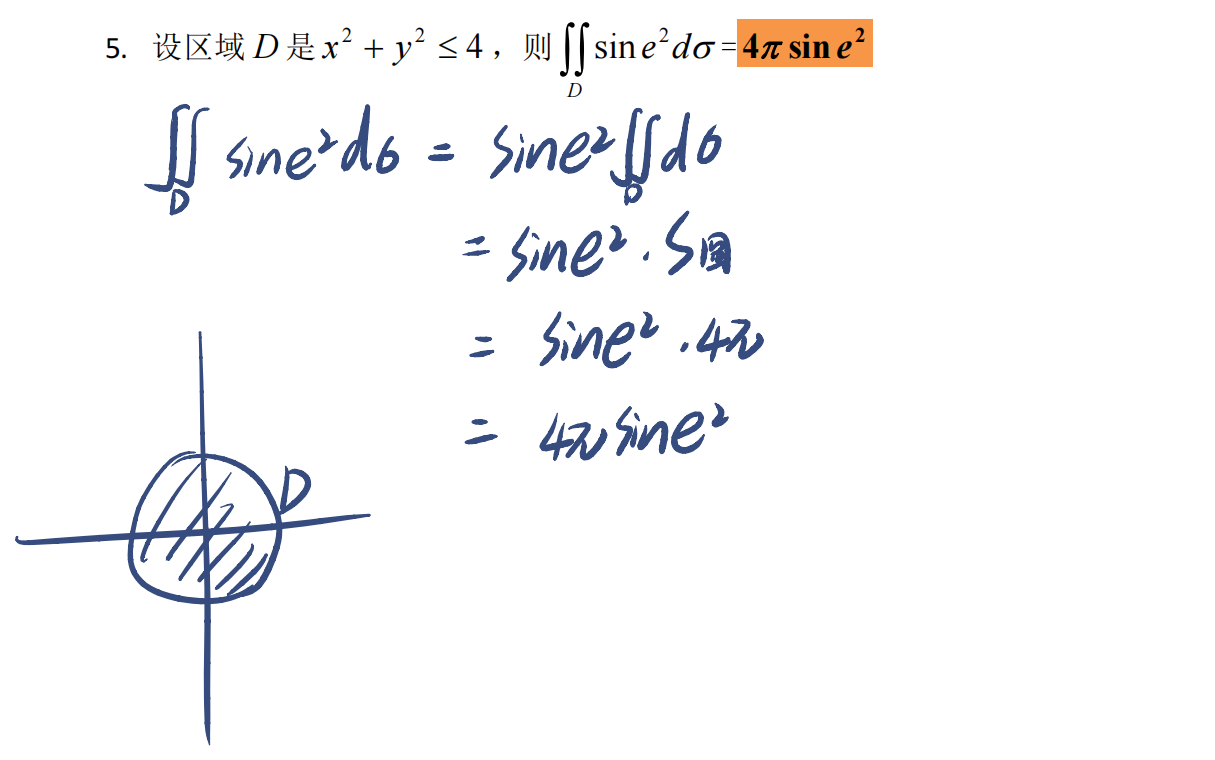 5. 设区域 D 是 x² + y² ≤ 4 ， 则 ∬ sin e² dσ = 4π sin e²
D
∬ sine² dσ = sine² ∬ dσ
D D
= sine² · S圆
= sine² · 4π
= 4π sine²
D